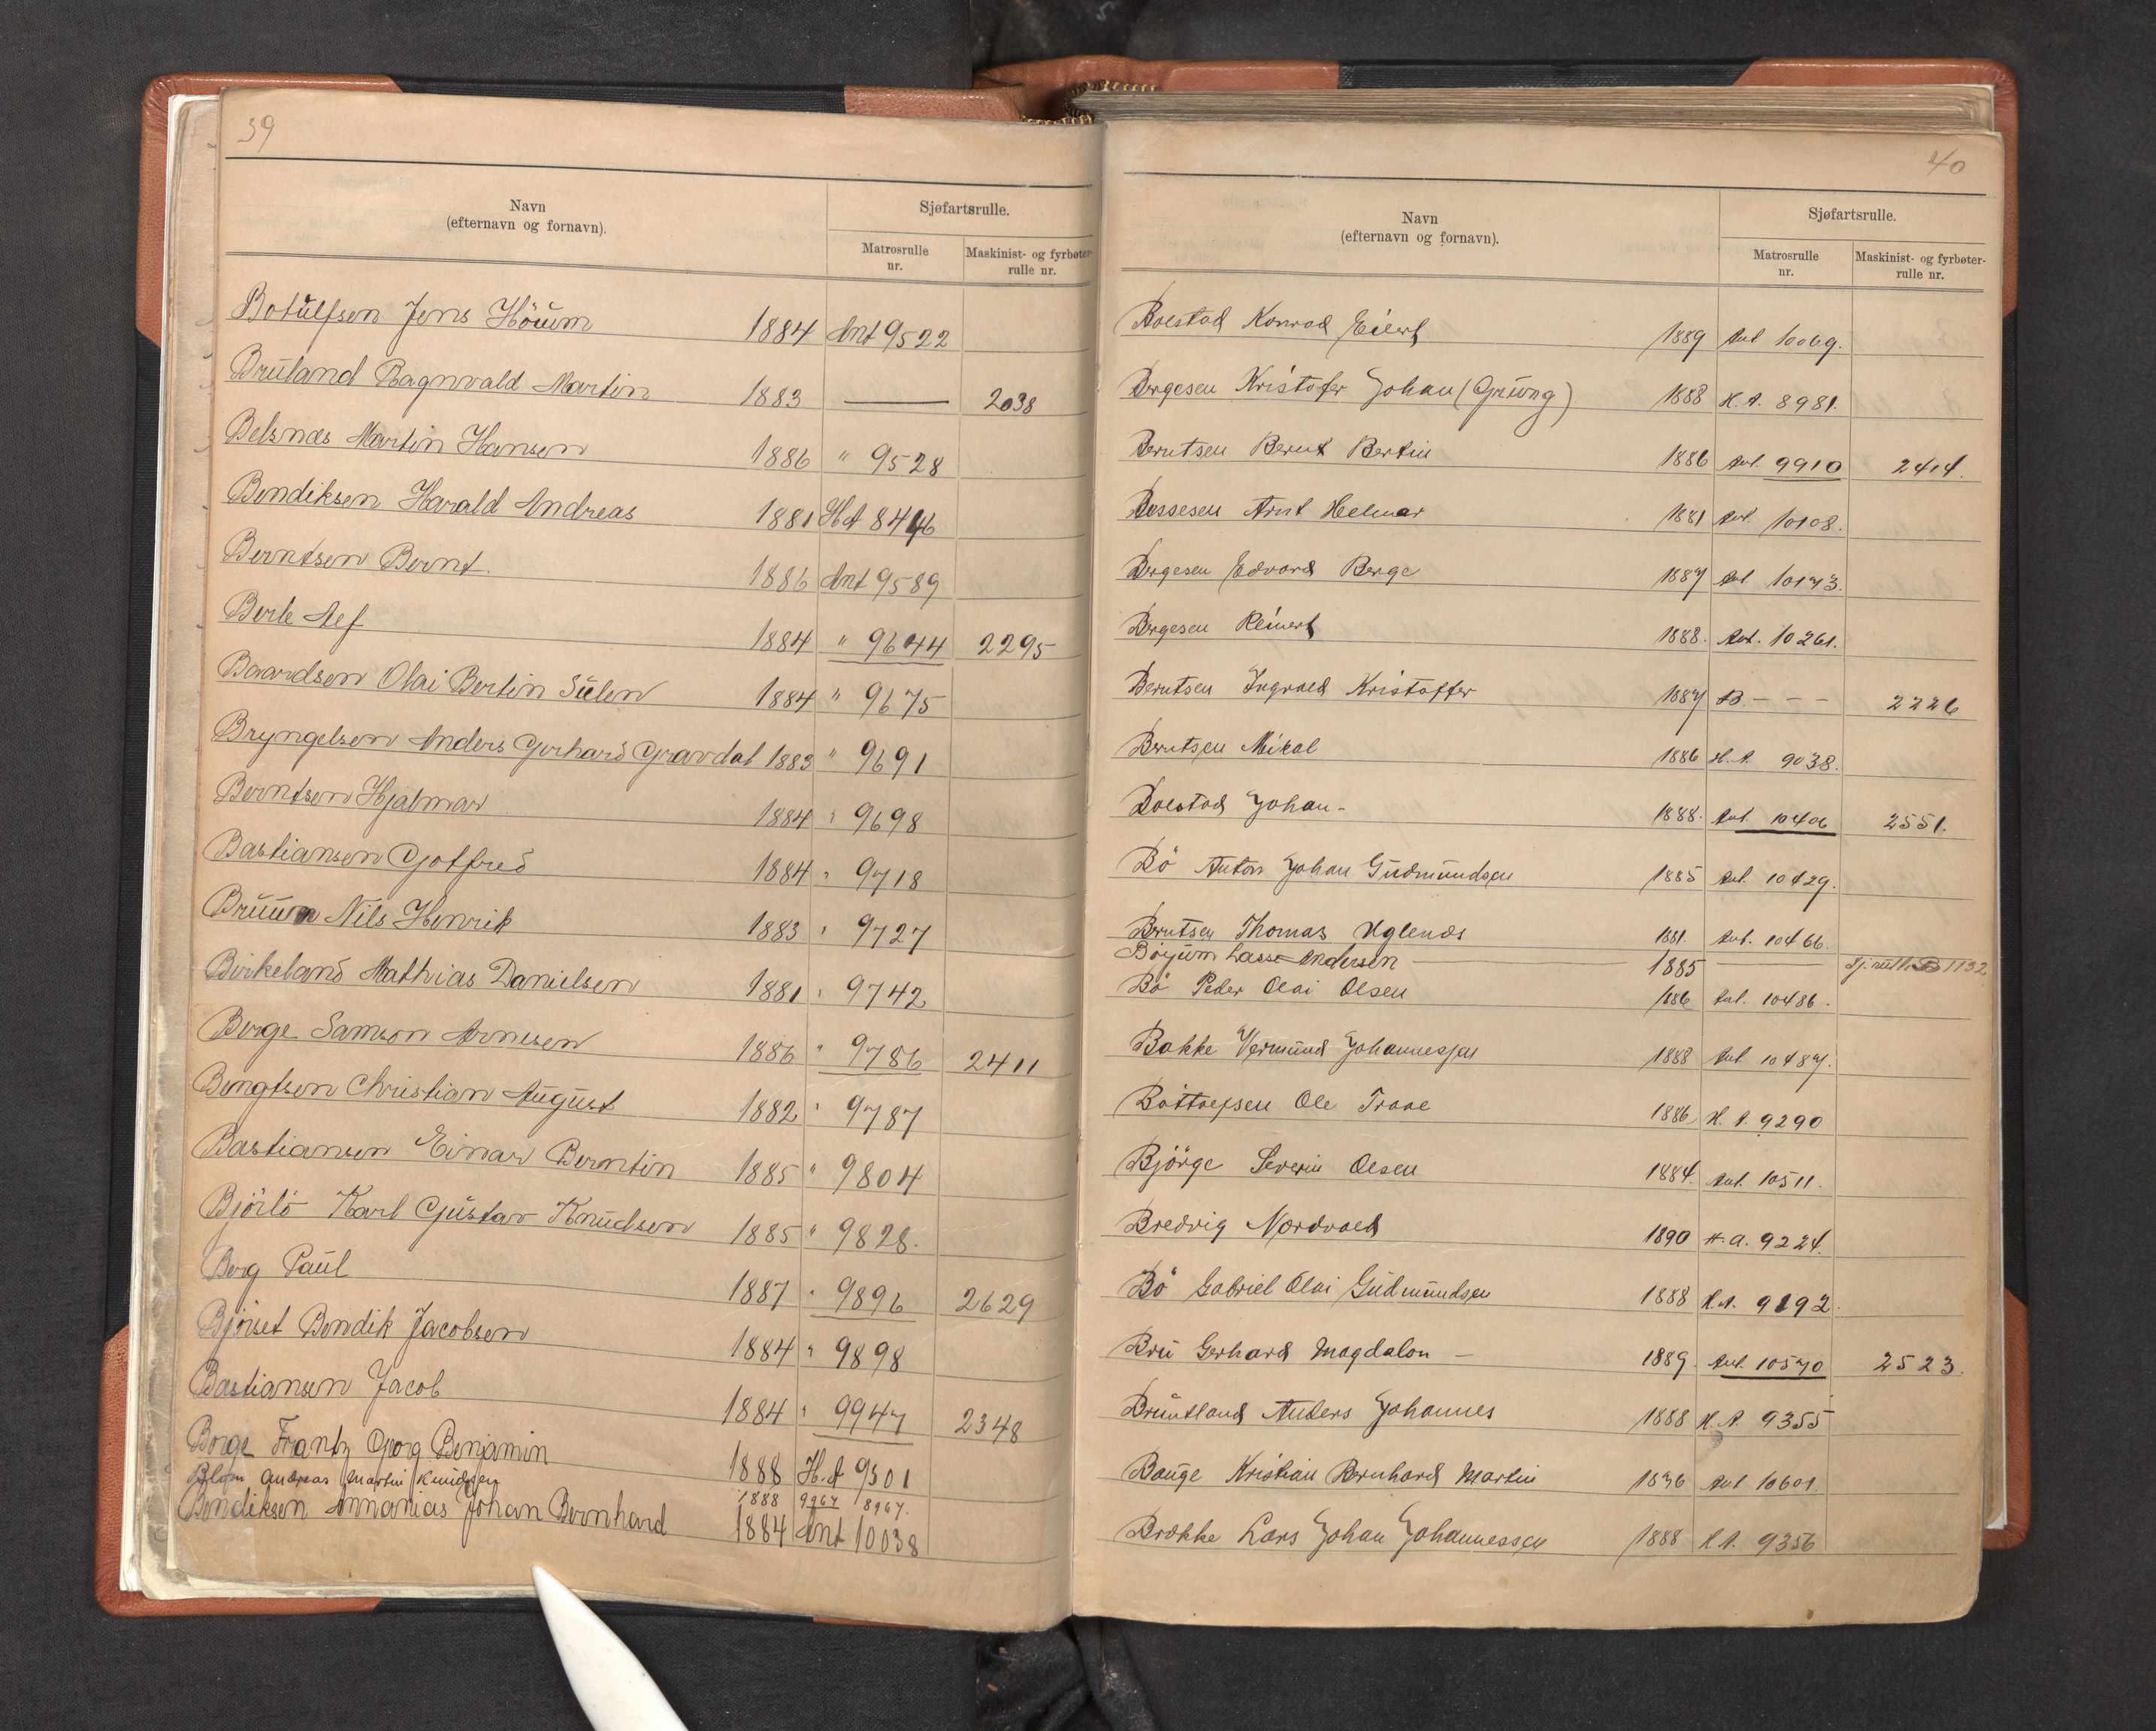 39
Navn
(efternavn og fornavn).
Sjøfartsrulle.
Matrosrulle nr.
Maskinist- og fyrbøter-rulle nr.
Botulfsen Jens Höium 1884 Ant 9522
Bruland Ragnvald Martin 1883 — 2038
Belsnæs Martin Hansen 1886 " 9528
Bendiksen Harald Andreas 1881 H A
Berntsen Bernt. 1886 Ant 9589
Berle 1884 " 9644 2295
Baardsen Olai Bertin Sulen 1884 " 9675
Bryngelsen Anders Gerhard Gravdal 1883 " 9691
Berntsen Hjalmar 1884 " 9698
Bastiansen Gotfred 1884 " 9718
Bruun Nils Henrik 1883 " 9727
Birkeland Mathias Danielsen 1881 " 9742
Berge Samson Arnesen 1886 " 9786 2411
Bengtsen Christian August 1882 " 9787
Bastiansen Einar Berntin 1885 " 9804
Bjørlö Karl Gustav Knudsen 1885 " 9828.
Berg Paul 1887 " 9896 2629
Bjöiset Bendik Jacobsen 1884 " 9898
Bastiansen Jacob 1884 " 9947 2348
Borge Frantz Georg Benjamin 1888 H.A 9301
Blom Andreas Martin Knudsen 1888 9967 8967.
Bendiksen Annanias Johan Bernhard 1884 Ant 10038
40
Navn
(efternavn og fornavn).
Sjøfartsrulle.
Matrosrulle nr.
Maskinist- og fyrbøter-rulle nr.
Bolstad Konrad Eilert 1889 Ant 10069.
Bergesen Kristofer Johan 1888 H.A. 8981.
Berntsen Bernt Bertin 1886 Ant. 9910 2414.
Bessesen Arnt Helmer 1881 Ant. 10108.
Bergesen Edvard Berge 1887 Ant 10173.
Bergesen Reinert 1888. Ant. 10261.
Berntsen Ingvald Kristoffer 1887 B. - - - 2226
Berntsen Mikal 1886 H.A. 9038.
Bolstad Johan - 1888. Ant 10406 2551.
Bö Anton Johan Gudmundsen 1885 Ant. 10429.
Berntsen Thomas Uglenes 1881. Ant. 10466.
Böyum Lasse Andersen — 1885 — Sj.rull. B 1132
Bö Peder Olai Olsen 1886 Ant. 10486.
Bakke Vermund Johannessen 1888 Ant. 10487.
Bottolfsen Ole Traae 1886 H.A. 9290
Björge Severin Olsen 1884. Ant. 10511.
Bredvig Nordvald 1890 H.A. 9224.
Bö Gabriel Olai Gudmundsen 1888 H.A. 9192.
Bru Gerhard Magdalon - 1889 Ant. 10570 2523.
Bruntland Anders Johannes 1888 H.A. 9355
Bauge Kristian Bernhard Martin Ant 10601.
Brekke Lars Johan Johannessen 1888 H.A. 9356